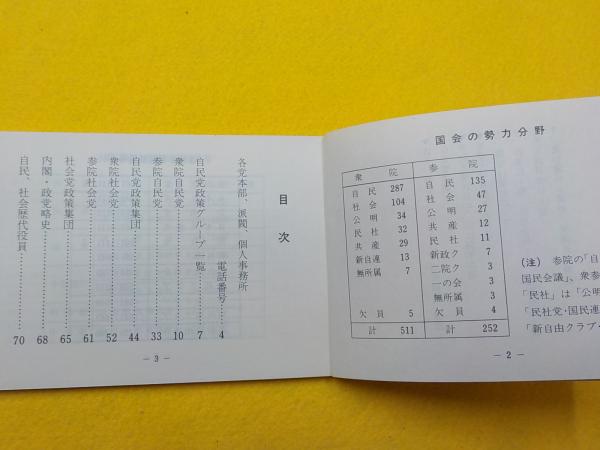 国会の勢力分野
衆 院 参 院
自 民 287 自 民 135
社 会 104 社 会 47
公 明 34 公 明 27
民 社 32 共 産 12
共 産 29 民 社 11
新自連 13 新政ク 7
無所属 7 二院ク 3
一の会 3
無所属 3
欠 員 5 欠 員 4
計 511 計 252
(注) 参院の「自
国民会議」、衆参
「民社」は「公明
「民社党・国民連
「新自由クラブ・
− 2 −
目次
各党本部、派閥、個人事務所
電話番号……4
自民党政策グループ一覧……7
衆院自民党……10
参院自民党……33
自民党政策集団……44
衆院社会党……52
参院社会党……61
社会党政策集団……65
内閣・政党略史……68
自民、社会歴代役員……70
− 3 −